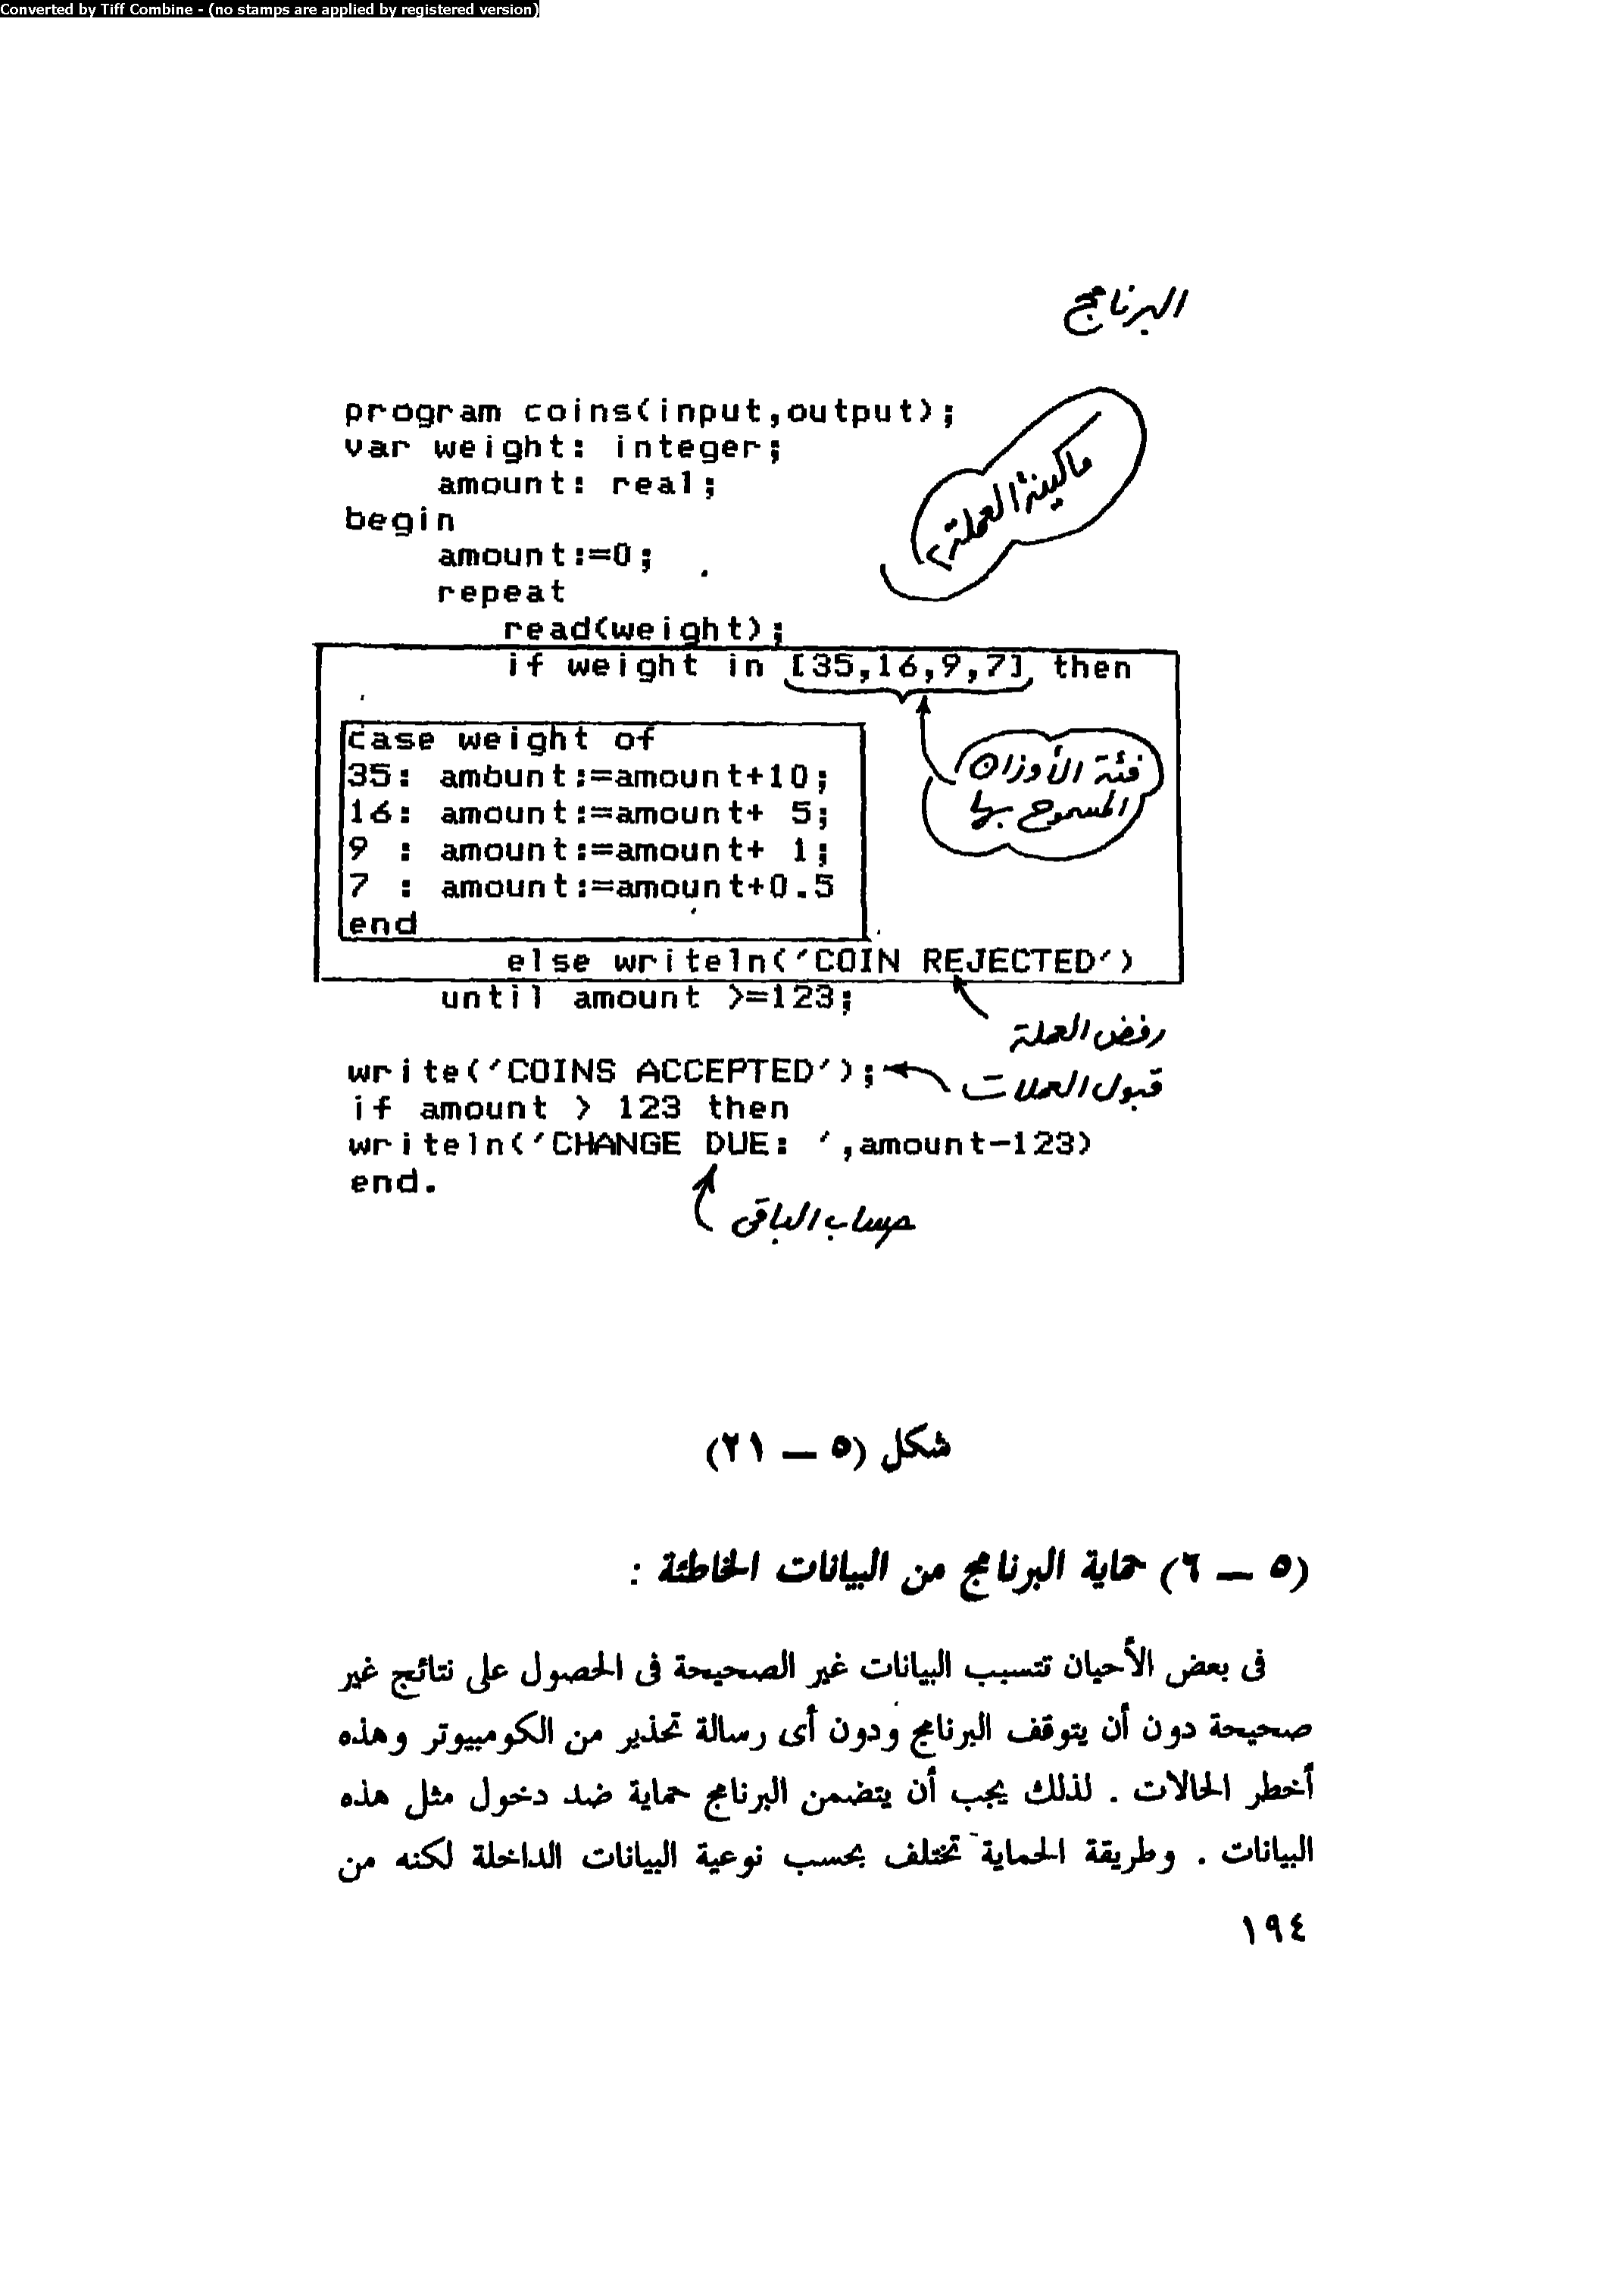 Converted by Tiff Combine - (no stamps are applied by registered version)
البرنامج
program coins(input,output);
var weight: integer;
amount: real;
begin
ماكينة العملة
amount:=0;
repeat
read(weight);
if weight in [35,16,9,7] then
case weight of
35: amount:=amount+10;
16: amount:=amount+ 5;
9 : amount:=amount+ 1;
7 : amount:=amount+0.5
end
فئة الأوزان
المسموح بها
else writeln('COIN REJECTED')
until amount >=123;
رفض العملة
write('COINS ACCEPTED');
قبول العملات
if amount > 123 then
writeln('CHANGE DUE: ',amount-123)
end.
حساب الباقى
شكل (٥ – ٢١)
(٥ – ٦) حماية البرنامج من البيانات الخاطئة :
فى بعض الأحيان تتسبب البيانات غير الصحيحة فى الحصول على نتائج غير
صحيحة دون أن يتوقف البرنامج ودون أى رسالة تحذير من الكومبيوتر وهذه
أخطر الحالات . لذلك يجب أن يتضمن البرنامج حماية ضد دخول مثل هذه
البيانات . وطريقة الحماية تختلف بحسب نوعية البيانات الداخلة لكنه من
١٩٤